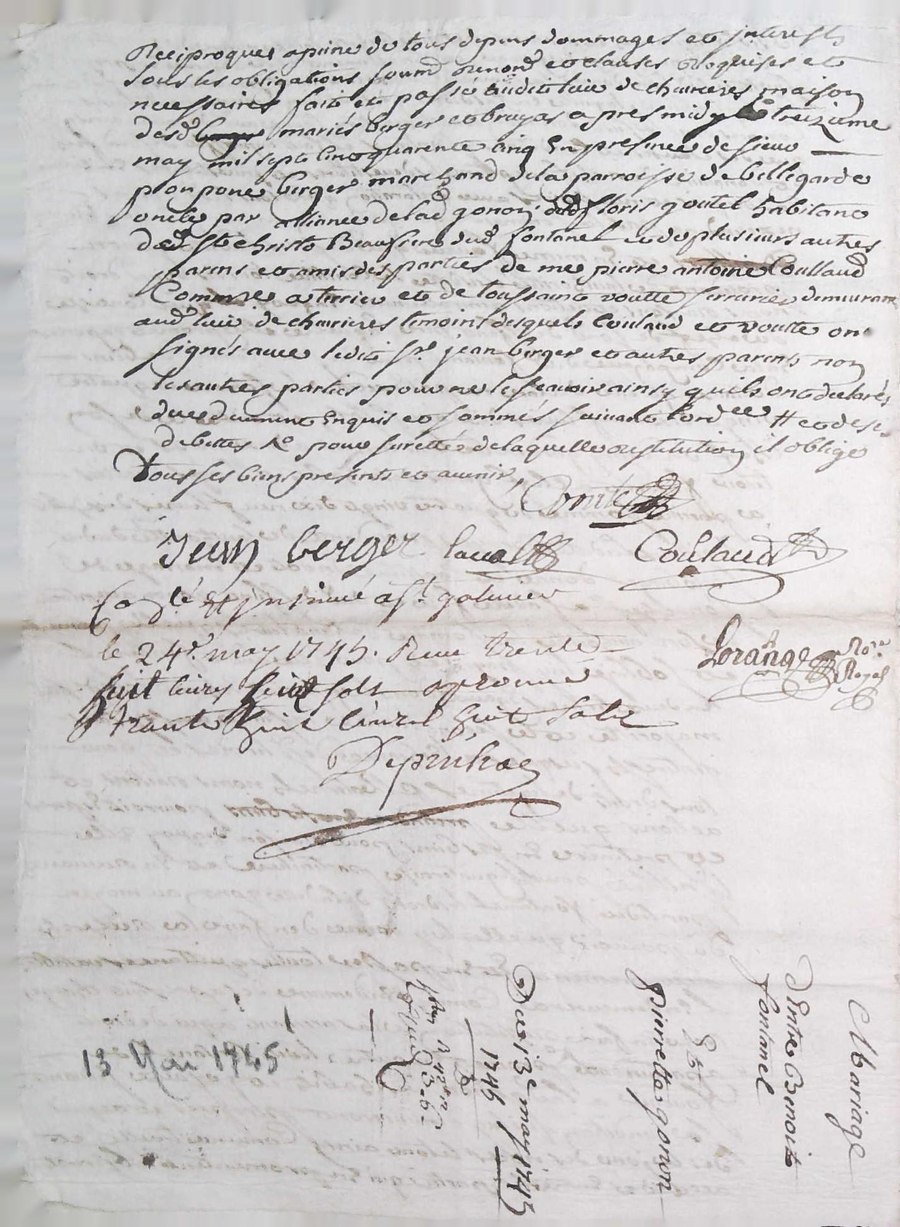 Reciproques a peine de tous depens dommages et interests
sous les obligations soumõns renonõns et clauses requises et
necessaires fait et passé audit lieu de chevrières maison
desd mariés berger et bruyas apres midy le treizieme
may mil sept cent quarente cinq En presence de sieur
ponpone berger marchand de la parroisse de bellegarde
oncle par alliance de lad gonon, floris goutel habitant
de St christo Beaufrere dud fontanel et de plusieurs autres
parens et amis des parties de me pierre antoine Coullaud
Commre a terrier et de toussaint voutte serrurier demeurant
aud lieu de chevrieres temoins desquels Coulaud et voutte ont
signés avec ledit sr jean berger et autres parens non
les autres parties pour ne le scavoir ainsy quils ont declarés
deuement Enquis et sommés suivant lord ce # et des
debittes &c pour surette de laquelle restitution il oblige
tous ses biens presents et avenir
Comte
Jean berger Coulaud
Conlé et insinué a St galmier
le 24e may 1745. Receu trente
huit livres huit sols
trante huit livres huit sols
Lorange Nore Royal
Mariage
Entre Benoit
fontanel
&
pierrette gonon
Du 13e may 1745
1745
13 Mai 1745